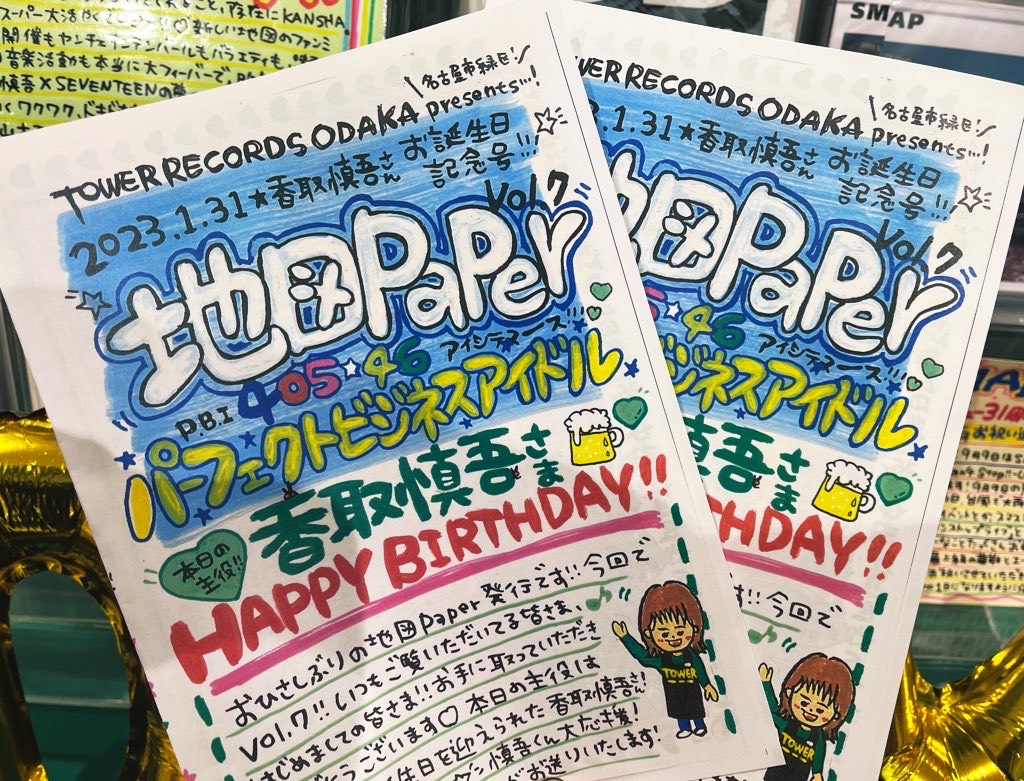 スーパー大活や
KANSHA
開催もヤンチェオンテンバールもバラエティも
音楽活動も本当に大フィーバーで
慎吾×SEVENTEENの
ワクワク、ドキドキ
SMAP
＼名古屋市緑区／
TOWER RECORDS ODAKA presents…!
2023.1.31★香取慎吾さんお誕生日
記念号!!!
Vol.7
地図PaPer
アイシテマース!!!
P.B.I 405★46
パーフェクトビジネスアイドル
香取慎吾さま
本日の
主役!!
HAPPY BIRTHDAY!!
おひさしぶりの地図Paper発行です!!今回で
Vol.7!!いつもご覧いただいてる皆さま、
はじめましての皆さま!!お手に取っていただき
ありがとうございます♡本日の主役は
生日を迎えられた香取慎吾さん!
慎吾くん大応援!
お送りいたします!
TOWER
＼名古屋市緑区／
TOWER RECORDS ODAKA presents…!
.1.31★香取慎吾さんお誕生日
記念号!!!
Vol.7
地図PaPer
アイシテマース!!!
5★46
ビジネスアイドル
慎吾さま
THDAY!!
す!!今回で
TOWER